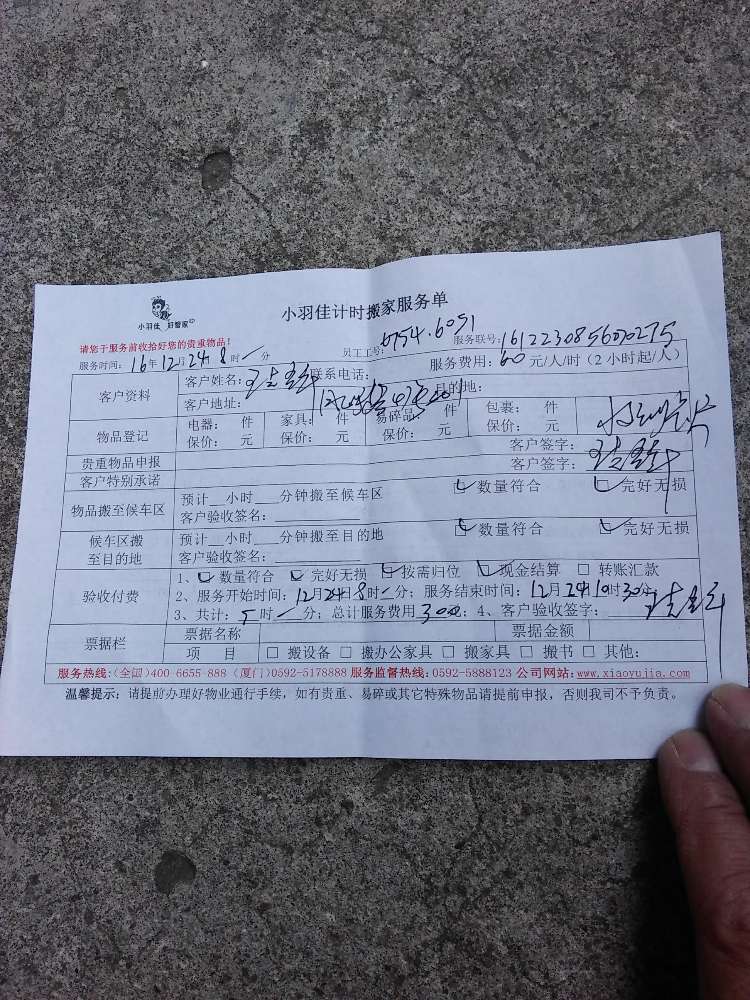 小羽佳 好管家
小羽佳计时搬家服务单
请您于服务前收拾好您的贵重物品！
员工工号: 0754.6091 服务联号: 1612230856020275
服务时间: 16年12月24日8时 分 服务费用: 60元/人/时（2小时起/人）
客户资料
客户姓名: 联系电话:
客户地址: 目的地:
物品登记
电器: 件 家具: 件 易碎品: 件 包裹: 件
保价: 元 保价: 元 保价: 元 保价: 元
贵重物品申报 客户签字:
客户特别承诺 客户签字:
物品搬至候车区
预计__小时___分钟搬至候车区 数量符合 完好无损
客户验收签名:
候车区搬至目的地
预计__小时___分钟搬至目的地 数量符合 完好无损
客户验收签名:
验收付费
1、 数量符合 完好无损 按需归位 现金结算 转账汇款
2、服务开始时间: 12月24日8时 分；服务结束时间: 12月24日10时30分
3、共计: 5时 分；总计服务费用300元；4、客户验收签字:
票据栏
票据名称 票据金额
项 目 □ 搬设备 □ 搬办公家具 □ 搬家具 □ 搬书 □ 其他:
服务热线:(全国)400-6655-888 (厦门)0592-5178888 服务监督热线:0592-5888123 公司网站:www.xiaoyujia.com
温馨提示: 请提前办理好物业通行手续，如有贵重、易碎或其它特殊物品请提前申报，否则我司不予负责。